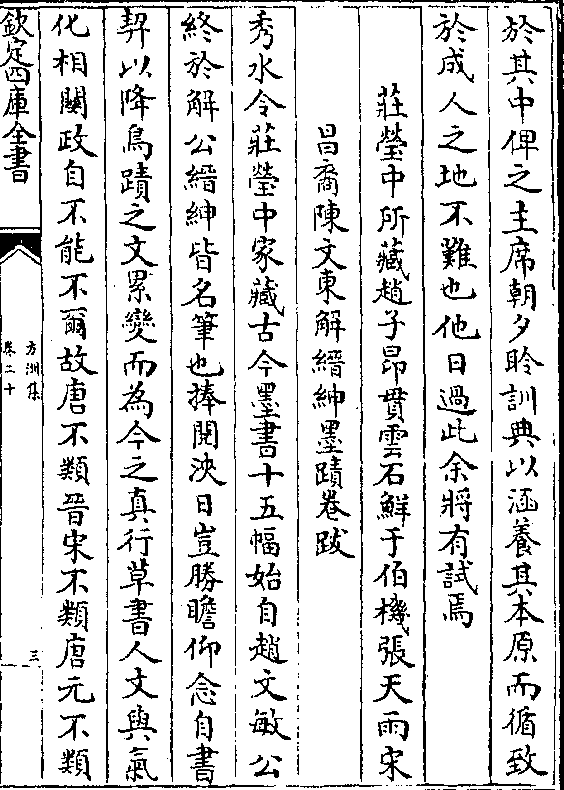 於其中俾之主席朝夕聆訓典以涵養其本原而循致
於成人之地不難也他日過此余將有試焉
莊瑩中所藏趙子昂貫雲石鮮于伯機張天雨宋
昌裔陳文東解縉紳墨蹟卷跋
秀水令莊瑩中家藏古今墨書十五幅始自趙文敏公
終於解公縉紳皆名筆也捧閱浹日豈勝瞻仰念自書
契以降鳥蹟之文累變而為今之真行草書人文與氣
化相關政自不能不爾故唐不類晉宋不類唐元不類
欽定四庫全書
方洲集
卷二十
三